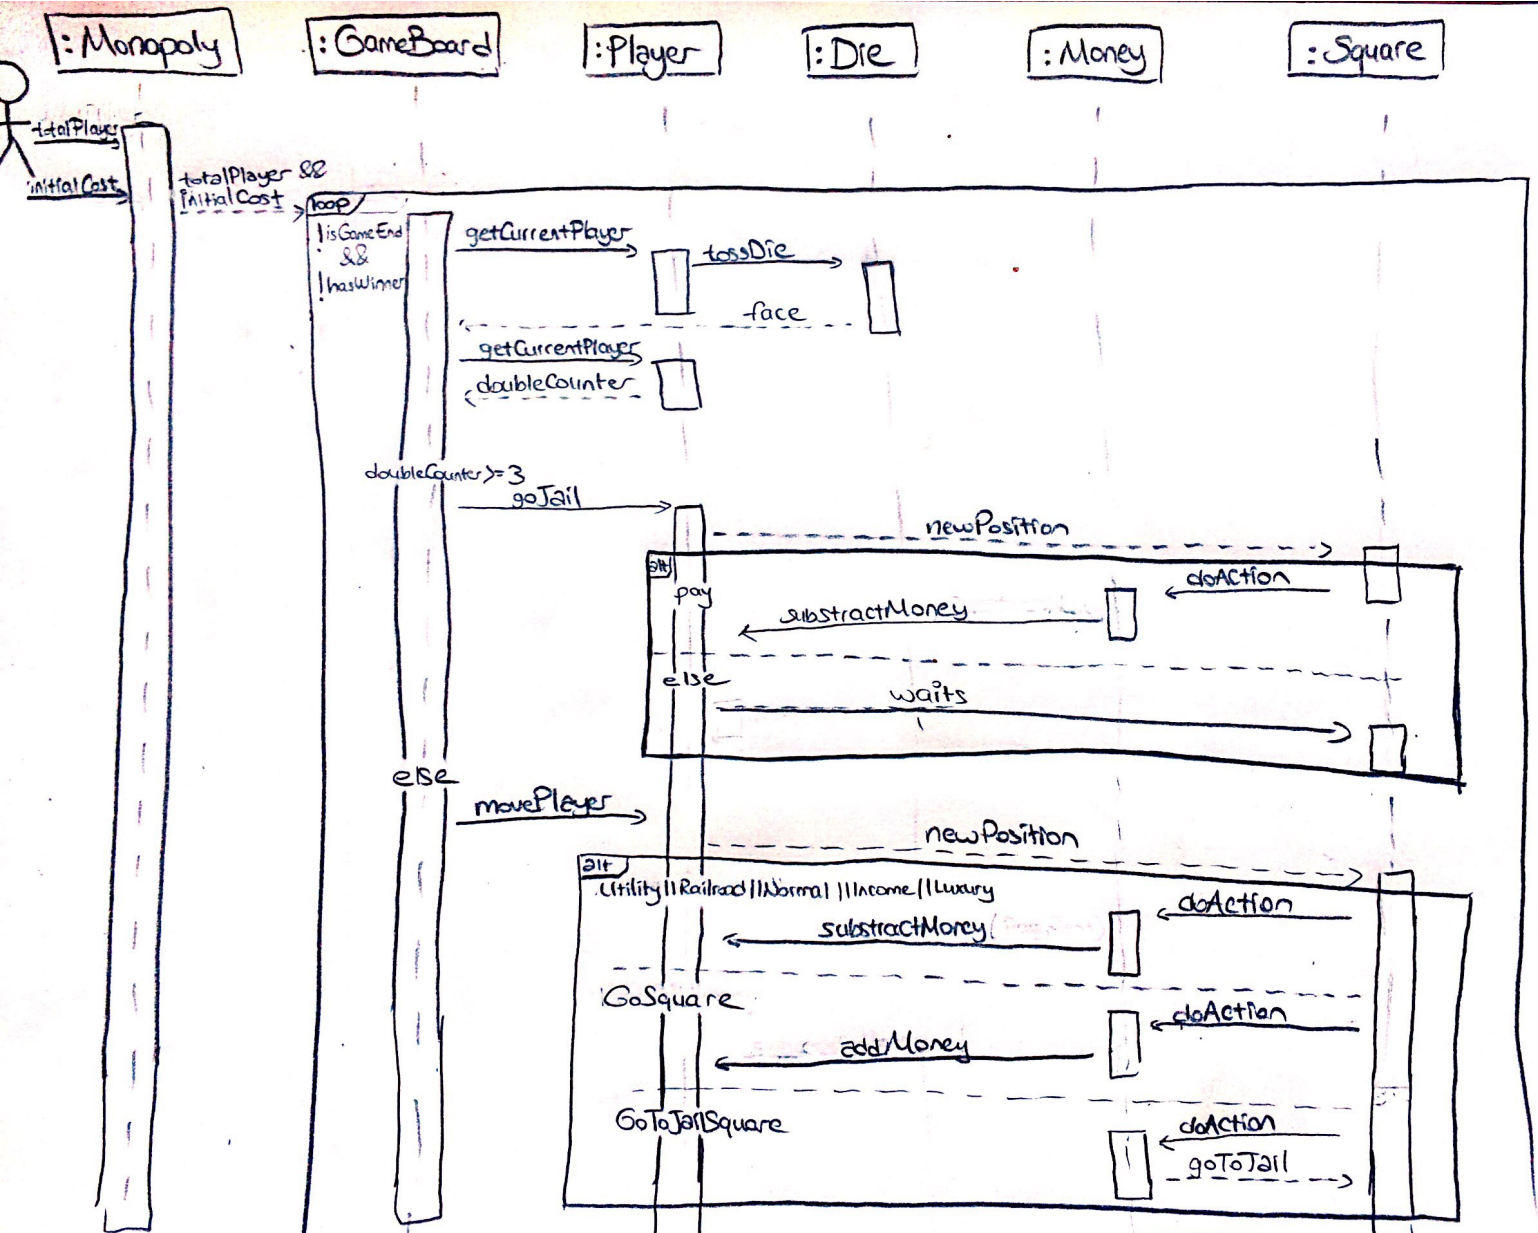 :Monopoly
:GameBoard
:Player
:Die
:Money
:Square
totalPlayer
initialCost
totalPlayer &&
initialCost
loop
!isGameEnd
&&
!hasWinner
getCurrentPlayer
tossDie
face
getCurrentPlayer
doubleCounter
doubleCounter>=3
goJail
newPosition
alt
pay
doAction
substractMoney
else
waits
else
movePlayer
newPosition
alt
Utility||Railroad||Normal||Income||Luxury
doAction
substractMoney
GoSquare
doAction
addMoney
GoToJailSquare
doAction
goToJail